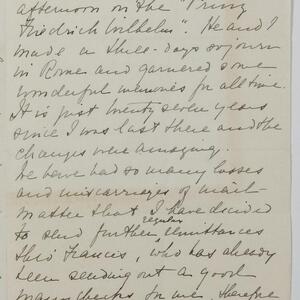 afternoon on the "Prinz
Friedrich Wilhelm". He and I
made a three-days sojourn
in Rome and garnered some
wonderful memories for all time.
It is just twenty seven years
since I was last there and the
changes were amazing.
We have had so many losses
and miscarriages of mail
matter that I have decided
regular
to send further remittances
thro' Francis, who has already
been sending out a good
many checks for me, therefore